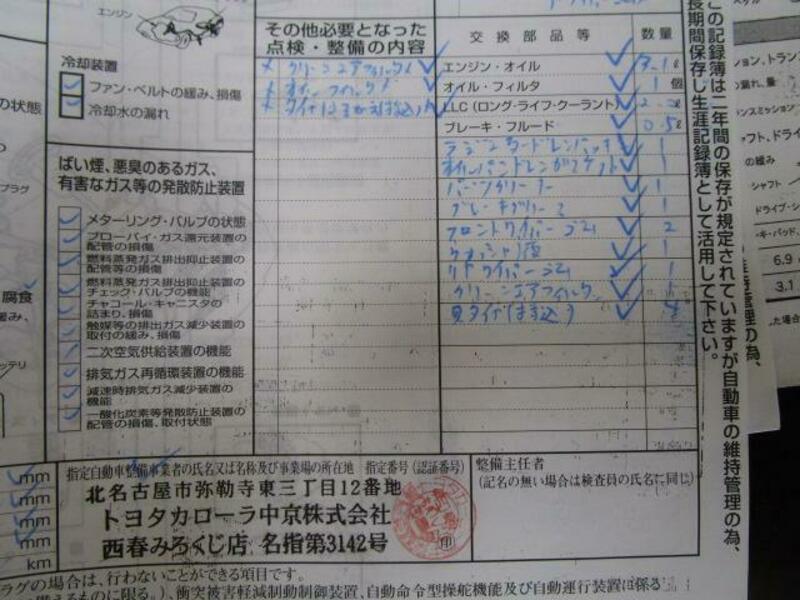 エンジン
冷却装置
ファン・ベルトの緩み、損傷
冷却水の漏れ
の状態
ばい煙、悪臭のあるガス、
有害なガス等の発散防止装置
メターリング・バルブの状態
ブローバイ・ガス還元装置の
配管の損傷
燃料蒸発ガス排出抑止装置の
配管等の損傷
燃料蒸発ガス排出抑止装置の
チェック・バルブの機能
チャコール・キャニスタの
詰まり、損傷
触媒等の排出ガス減少装置の
取付の緩み、損傷
二次空気供給装置の機能
排気ガス再循環装置の機能
減速時排気ガス減少装置の
機能
一酸化炭素等発散防止装置の
配管の損傷、取付状態
腐食
その他必要となった
点検・整備の内容
クリーンエアフィルタ
オイルフィルタ
交換部品等
数量
エンジン・オイル
オイル・フィルタ 1 個
LLC(ロング・ライフ・クーラント)
ブレーキ・フルード 0.5ℓ
パーツクリーナー 1
ブレーキクリーナ 1
フロントワイパーゴム 2
ウォッシャ液 1
リヤワイパーゴム 1
クリーンエアフィルタ 1
この記録簿は二年間の保存が規定されていますが自動車の維持管理の為、
長期間保存し生涯記録簿として活用して下さい。
維持管理の為、
シャフト
6.9
3.1
mm
mm
mm
mm
km
指定自動車整備事業者の氏名又は名称及び事業場の所在地 指定番号(認証番号)
北名古屋市弥勒寺東三丁目12番地
トヨタカローラ中京株式会社
西春みろくじ店 名指第3142号
印
整備主任者
(記名の無い場合は検査員の氏名に同じ)
ラグの場合は、行わないことができる項目です。
備えるものに限る。)、衝突被害軽減制動制御装置、自動命令型操舵機能及び自動運行装置は係る